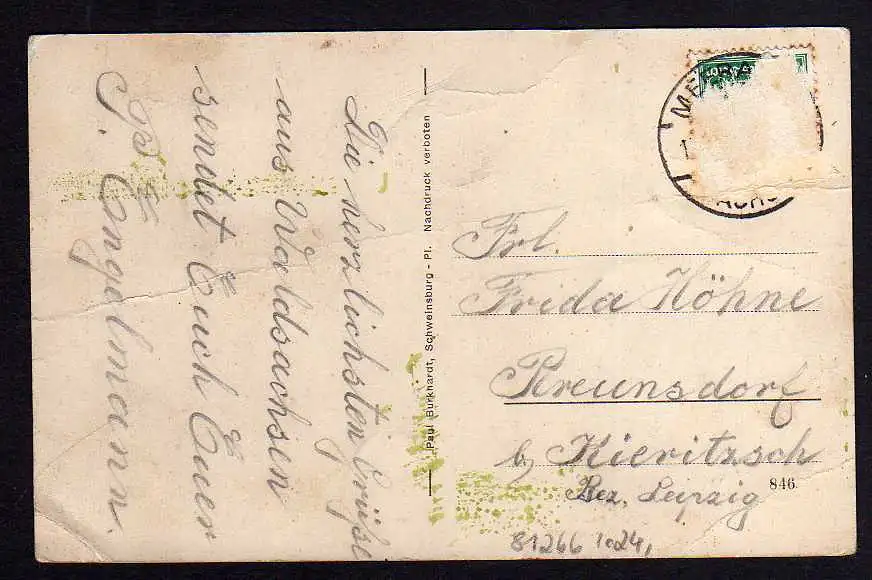 Die herzlichsten Grüße
aus Waldsachsen
sendet Euch Euer
P. Engelmann.
Paul Burkhardt, Schweinsburg - Pl. Nachdruck verboten
Frl.
Frida Höhne
Breunsdorf
b. Kieritzsch
Bez. Leipzig
846
81266 1024,